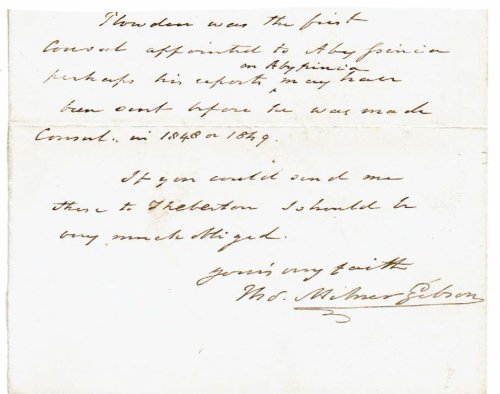 Plowden was the first
Consul appointed to Abyssinia
on Abyssinia
perhaps his reports ^ may have
been sent before he was made
Consul. in 1848 or 1849.
If you could send me
these to Theberton I should be
very much obliged.
yours very faith
Tho. Milner Gibson